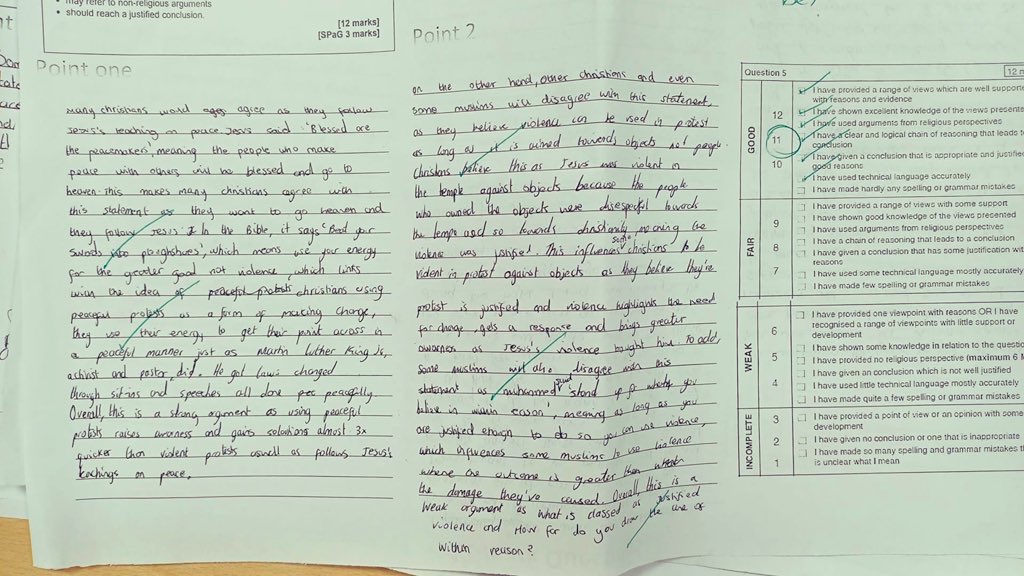 may refer to non-religious arguments
• should reach a justified conclusion.
[12 marks]
[SPaG 3 marks]
Point one
Many christians would agree as they follow
Jesus's teaching on peace. Jesus said 'Blessed are
the peacemakers', meaning the people who make
peace with others will be blessed and go to
heaven. This makes many christians agree with
this statement as they want to go heaven and
they follow Jesus. In the Bible, it says 'Beat your
swords into ploughshares', which means use your energy
for the greater good not violence, which links
with the idea of peaceful protests christians using
peaceful protests as a form of making change,
they use their energy to get their point across in
a peaceful manner just as Martin Luther King Jr,
activist and pastor, did. He got laws changed
through sit-ins and speeches all done peacefully.
Overall, this is a strong argument as using peaceful
protests raises awarness and gains solutions almost 3x
quicker than violent protests aswell as follows Jesus's
teachings on peace.
Point 2
on the other hand, other christions and even
some muslims will disagree with this statement,
as they believe violence can be used in protest
as long as it is aimed towards objects not people.
Christians believe this as Jesus was violent in
the temple against objects because the people
who owned the objects were disrespectful towards
the temple and so towards christianity, meaning the
violence was justified. This influences some christians to be
violent in protest against objects as they believe they're
protist is justified and violence highlights the need
for change, gets a response and brings greater
awarness as Jesus's violence bought him. To add,
some muslims will also disagree with this
statement as muhammed said stand up for what you
belive in within reason, meaning as long as you
are justified enough to do so you can use violence,
which influences some muslims to use violence
where the outcome is greater than
the damage they've caused. Overall, this is a
weak argument as what is classed as justified
violence and how far do you draw the line of
within reason?
Question 5
12 m
GOOD
12
11
10
I have provided a range of views which are well supporte
with reasons and evidence
I have shown excellent knowledge of the views presente
I have used arguments from religious perspectives
I have a clear and logical chain of reasoning that leads to
conclusion
I have given a conclusion that is appropriate and justified
good reasons
I have used technical language accurately
I have made hardly any spelling or grammar mistakes
FAIR
9
8
7
I have provided a range of views with some support
I have shown good knowledge of the views presented
I have used arguments from religious perspectives
I have a chain of reasoning that leads to a conclusion
I have given a conclusion that has some justification with
reasons
I have used some technical language mostly accurately
I have made few spelling or grammar mistakes
WEAK
6
5
4
I have provided one viewpoint with reasons OR I have
recognised a range of viewpoints with little support or
development
I have shown some knowledge in relation to the questio
I have provided no religious perspective (maximum 6 M
I have given an conclusion which is not well justified
I have used little technical language mostly accurately
I have made quite a few spelling or grammar mistakes
INCOMPLETE
3
2
1
I have provided a point of view or an opinion with some
development
I have given no conclusion or one that is inappropriate
I have made so many spelling and grammar mistakes th
is unclear what I mean